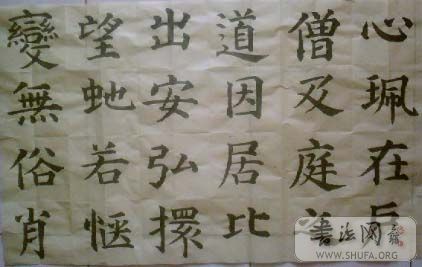 心珮在
僧及庭
道因居比
出安弘擐
望虵若愜
變無俗肖
書法网
WWW.SHUFA.ORG